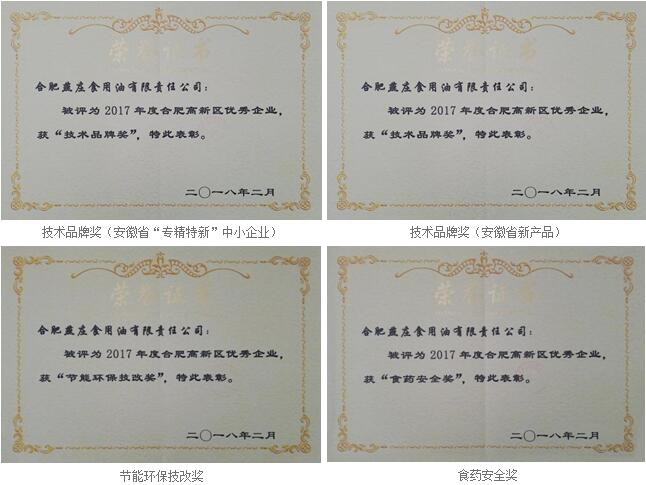 荣誉证书
合肥燕庄食用油有限责任公司：
被评为2017年度合肥高新区优秀企业，
获“技术品牌奖”，特此表彰。
二〇一八年二月
技术品牌奖（安徽省“专精特新”中小企业）
荣誉证书
合肥燕庄食用油有限责任公司：
被评为2017年度合肥高新区优秀企业，
获“技术品牌奖”，特此表彰。
二〇一八年二月
技术品牌奖（安徽省新产品）
荣誉证书
合肥燕庄食用油有限责任公司：
被评为2017年度合肥高新区优秀企业，
获“节能环保技改奖”，特此表彰。
二〇一八年二月
节能环保技改奖
荣誉证书
合肥燕庄食用油有限责任公司：
被评为2017年度合肥高新区优秀企业，
获“食药安全奖”，特此表彰。
二〇一八年二月
食药安全奖